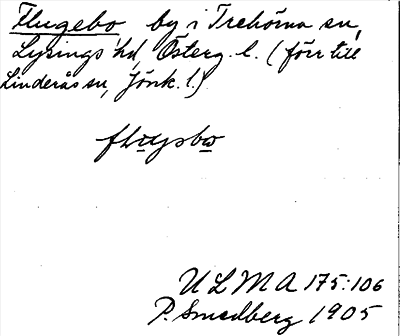 Flugebo, by i Trehörna sn,
Lysings hd, Österg. l. (förr till
Linderås sn, Jönk. l.)
ULMA 175:106
P. Smedberg 1905